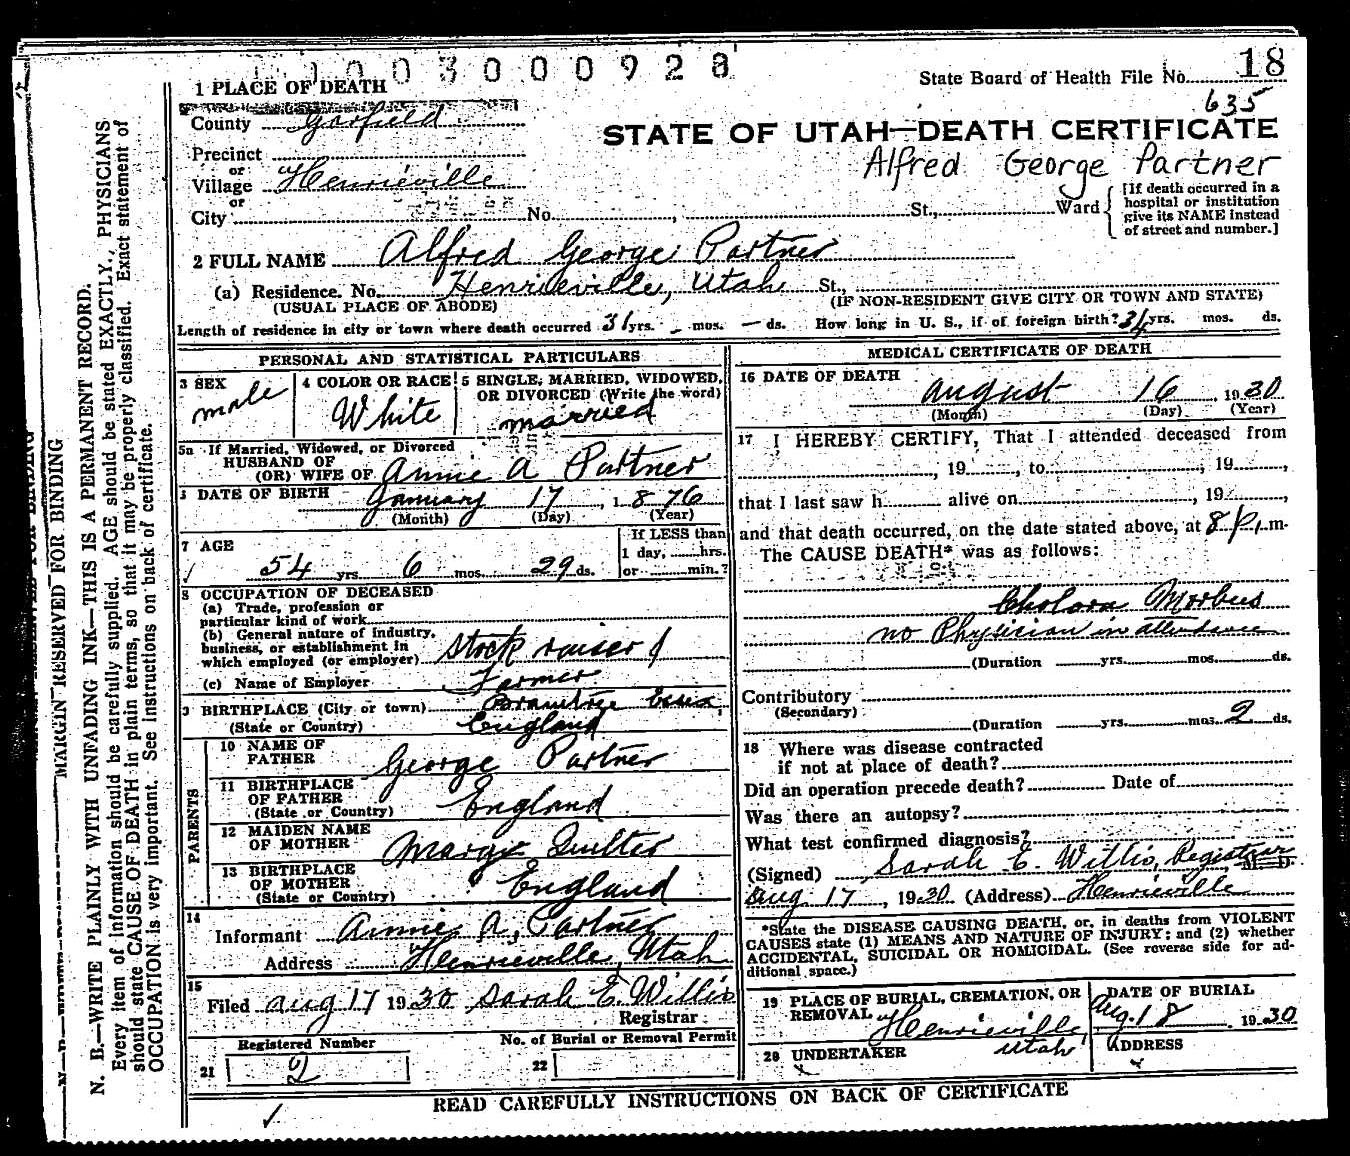 1003000928
State Board of Health File No. 18
635
1 PLACE OF DEATH
County Garfield
STATE OF UTAH—DEATH CERTIFICATE
Alfred George Partner
Precinct
or
Village Henrieville
or
City No. , St., Ward
[If death occurred in a
hospital or institution
give its NAME instead
of street and number.]
2 FULL NAME Alfred George Partner
(a) Residence. No. Henrieville, Utah St.,
(USUAL PLACE OF ABODE) (IF NON-RESIDENT GIVE CITY OR TOWN AND STATE)
Length of residence in city or town where death occurred 31 yrs. - mos. - ds. How long in U. S., if of foreign birth? 34 yrs. mos. ds.
PERSONAL AND STATISTICAL PARTICULARS
3 SEX
male
4 COLOR OR RACE
White
5 SINGLE, MARRIED, WIDOWED,
OR DIVORCED (Write the word)
married
5a If Married, Widowed, or Divorced
HUSBAND OF
(OR) WIFE OF Annie A Partner
DATE OF BIRTH January 17, 1876
(Month) (Day) (Year)
7 AGE
54 yrs. 6 mos. 29 ds.
If LESS than
1 day, hrs.
or min.?
8 OCCUPATION OF DECEASED
(a) Trade, profession or
particular kind of work
(b) General nature of industry,
business, or establishment in
which employed (or employer) Stock raiser &
(c) Name of Employer Farmer
BIRTHPLACE (City or town) Braintree Essex,
(State or Country) England
PARENTS
10 NAME OF
FATHER George Partner
11 BIRTHPLACE
OF FATHER
(State or Country) England
12 MAIDEN NAME
OF MOTHER Quilter
13 BIRTHPLACE
OF MOTHER
(State or Country) England
14
Informant Annie A. Partner
Address Henrieville, Utah
15
Filed Aug 17 1930 Sarah E. Willis
Registrar
Registered Number
21 2
No. of Burial or Removal Permit
22
MEDICAL CERTIFICATE OF DEATH
16 DATE OF DEATH
August 16, 1930
(Month) (Day) (Year)
17 I HEREBY CERTIFY, That I attended deceased from
, 19 , to , 19 ,
that I last saw h alive on , 19 ,
and that death occurred, on the date stated above, at 8 P.m.
The CAUSE DEATH* was as follows:
Cholora Morbus
no Physician in attendance
(Duration yrs. mos. ds.
Contributory
(Secondary)
(Duration yrs. mos. 2 ds.
18 Where was disease contracted
if not at place of death?
Did an operation precede death? Date of
Was there an autopsy?
What test confirmed diagnosis?
(Signed) Sarah E. Willis, Registrar M. D.
Aug 17, 1930 (Address) Henrieville
*State the DISEASE CAUSING DEATH, or, in deaths from VIOLENT
CAUSES state (1) MEANS AND NATURE OF INJURY; and (2) whether
ACCIDENTAL, SUICIDAL OR HOMICIDAL. (See reverse side for ad-
ditional space.)
19 PLACE OF BURIAL, CREMATION, OR
REMOVAL Henrieville,
Utah
DATE OF BURIAL
Aug. 18, 1930
20 UNDERTAKER
x
ADDRESS
x
READ CAREFULLY INSTRUCTIONS ON BACK OF CERTIFICATE
MARGIN RESERVED FOR BINDING
N. B.—WRITE PLAINLY WITH UNFADING INK—THIS IS A PERMANENT RECORD.
Every item of information should be carefully supplied. AGE should be stated EXACTLY., PHYSICIANS
should state CAUSE OF DEATH in plain terms, so that it may be properly classified. Exact statement of
OCCUPATION is very important. See instructions on back of certificate.